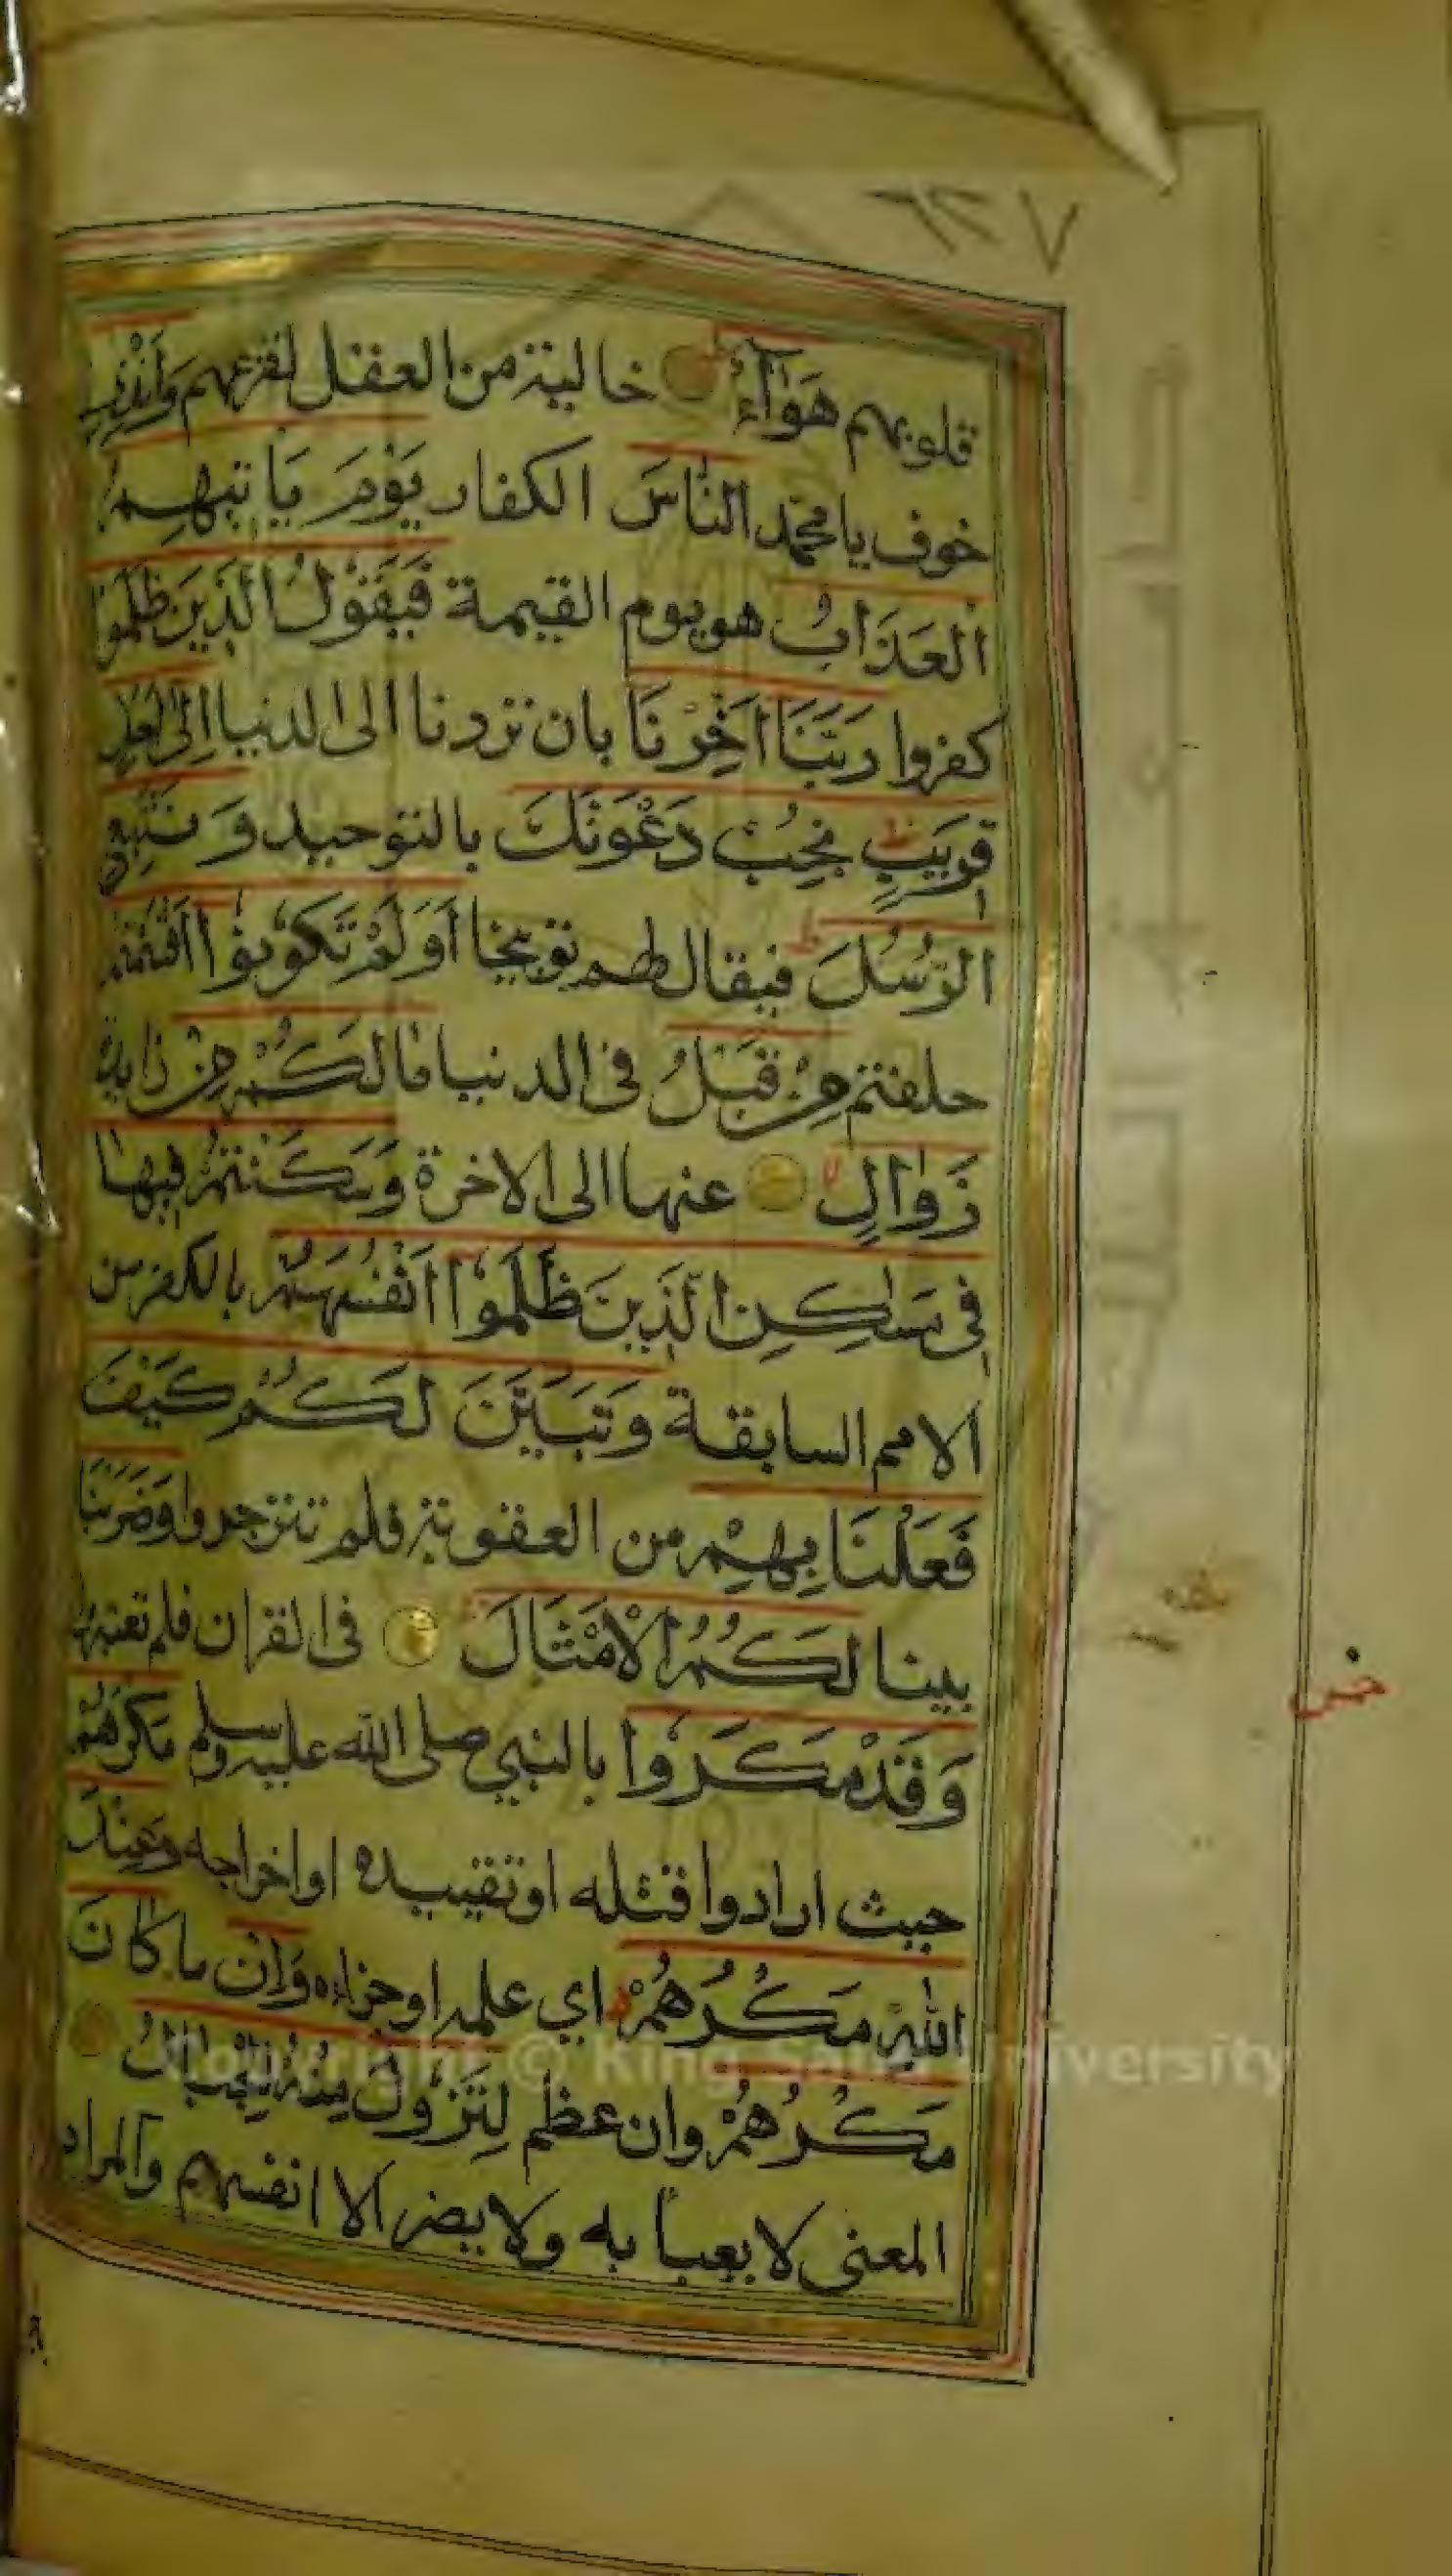 ٢٣٧
قلوبهم هَوَآءٌ خالية من العقل لفزعهم وَاَنْذِرِ
خوف يا محمّد النَّاسَ الكفار يَوْمَ يَاْتيهِمُ
الْعَذَابُ هو يوم القيمة فَيَقُولُ الَّذِينَ ظَلَمُوا
كفروا رَبَّنَا اَخِّرْنَا بان تردنا الى الدنيا اِلٰى اَجَلٍ
قَرِيبٍ نُجِبْ دَعْوَتَكَ بالتوحيد وَنَتَّبِعِ
الرُّسُلَ فيقال لهم توبيخا اَوَلَمْ تَكُونُوا اَقْسَمْتُمْ
حلفتم مِنْ قَبْلُ فى الدنيا مَا لَكُمْ مِنْ زايدة
زَوَالٍ عنها الى الاخرة وَسَكَنْتُمْ فيها
فِى مَسَاكِنِ الَّذِينَ ظَلَمُوا اَنْفُسَهُمْ بالكفر من
الامم السابقة وَتَبَيَّنَ لَكُمْ كَيْفَ
فَعَلْنَا بِهِمْ من العقوبة فلم تنزجروا وَضَرَبْنَا
بينا لَكُمُ الْاَمْثَالَ فى القران فلم تعتبروا
وَقَدْ مَكَرُوا بالنبي صلى الله عليه وسلم مَكْرَهُمْ
حيث ارادوا قتله او تقييده او اخراجه وَعِنْدَ
اللهِ مَكْرُهُمْ اي علمه او جزاءه وَاِنْ ما كَانَ
مَكْرُهُمْ وان عظم لِتَزُولَ مِنْهُ الْجِبَالُ
المعنى لا يعبأ به ولا يضر الا انفسهم والمراد
خمس
Copyright © King Saud University